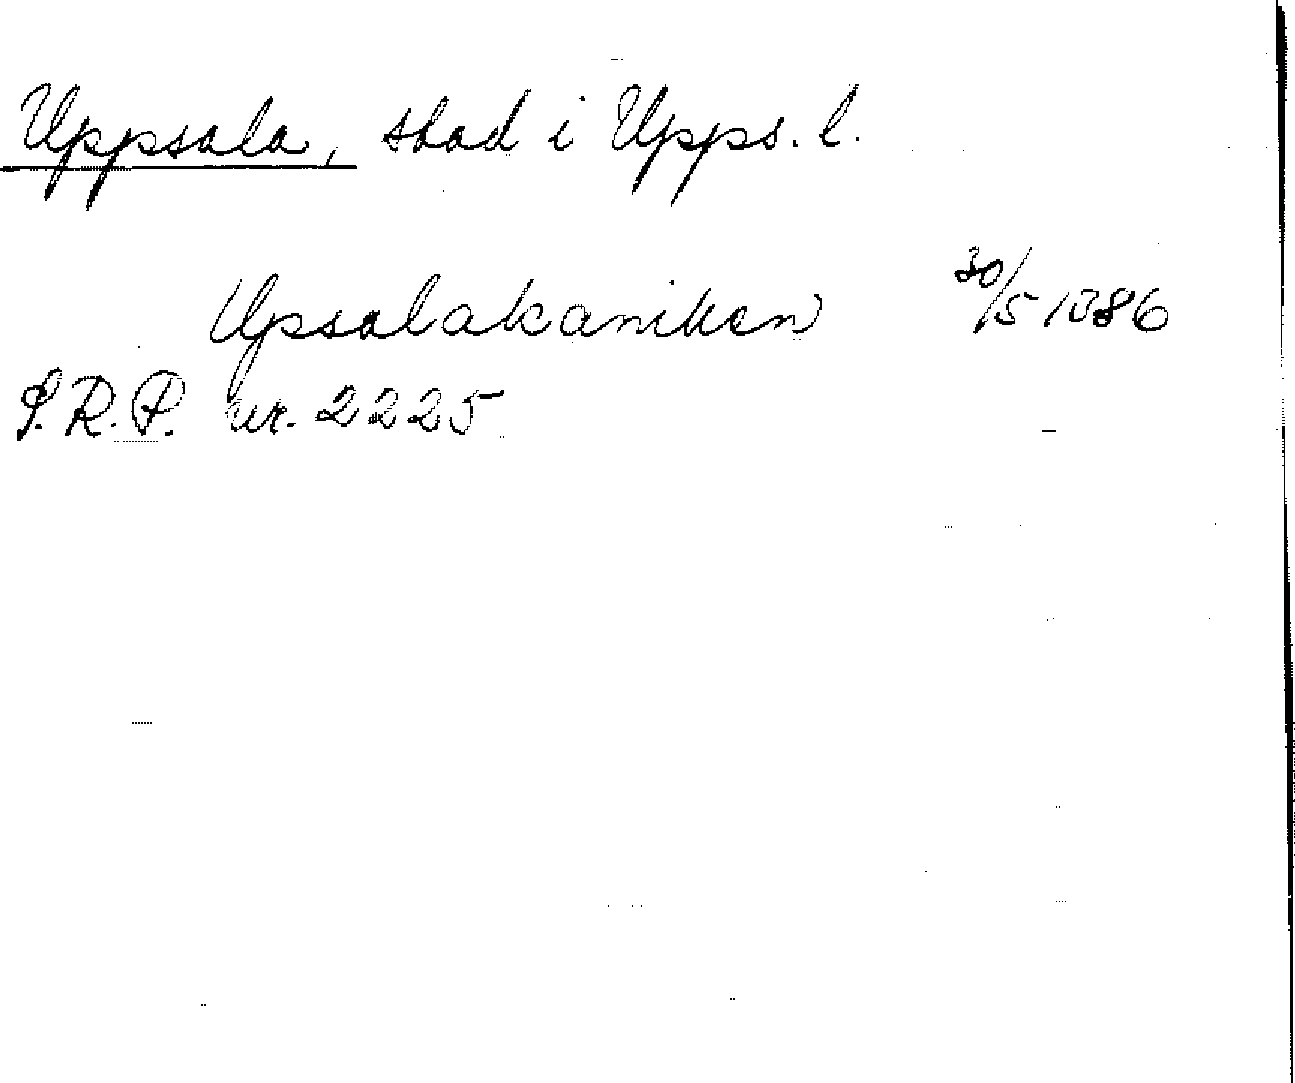 Uppsala, stad i Upps. l.
Upsalakaniken 30/5 1386
S.R.P. nr. 2225